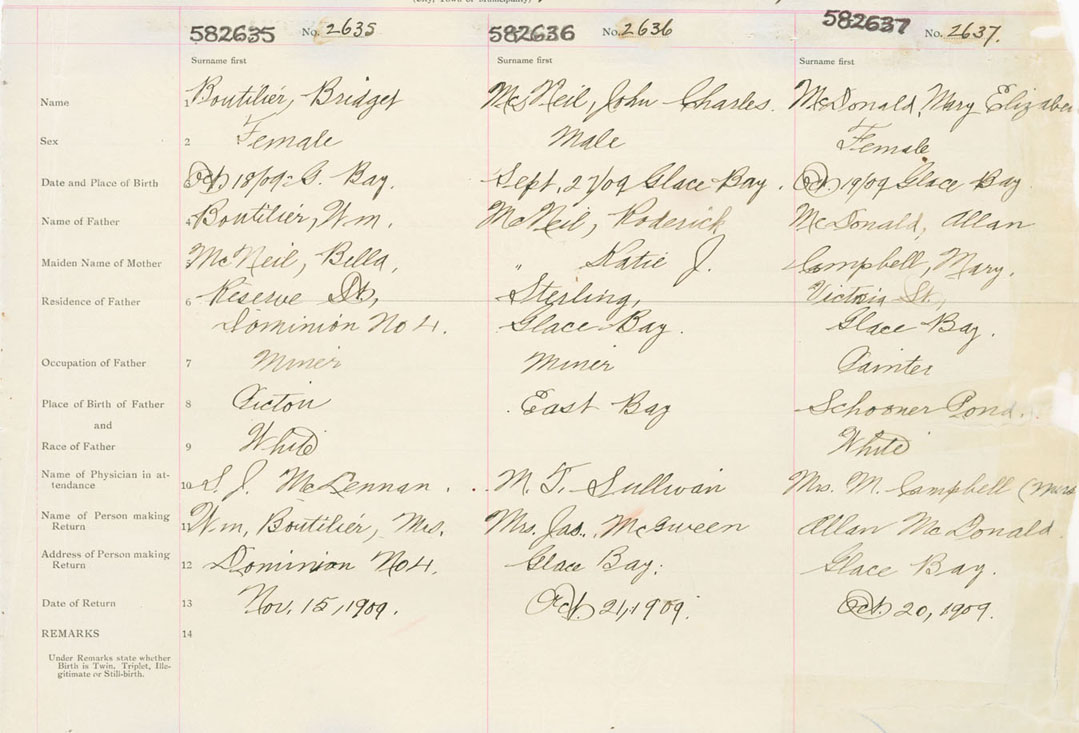 582635 No. 2635 582636 No. 2636 582637 No. 2637.
Surname first Surname first Surname first
Name 1 Boutilier, Bridget McNeil, John Charles. McDonald, Mary Elizabe
Sex 2 Female Male Female
Date and Place of Birth Oct. 18/09 G. Bay. Sept, 27/09 Glace Bay. Oct. 19/09 Glace Bay
Name of Father 4 Boutilier, Wm. McNeil, Roderick McDonald, Allan
Maiden Name of Mother 5 McNeil, Bella, " Katie J. Campbell, Mary.
Residence of Father 6 Reserve St, Sterling, Victoria St,
Dominion No 4. Glace Bay. Glace Bay.
Occupation of Father 7 Miner Miner Painter
Place of Birth of Father 8 Pictou East Bay Schooner Pond.
and
Race of Father 9 White White
Name of Physician in at-
tendance 10 S. J. McLennan. M. T. Sullivan Mrs. M. Campbell
Name of Person making
Return 11 Wm, Boutilier, Mrs. Mrs. Jas. McSween Allan McDonald.
Address of Person making
Return 12 Dominion No 4. Glace Bay. Glace Bay.
Date of Return 13 Nov. 15, 1909. Oct. 21, 1909. Oct. 20, 1909.
REMARKS 14
Under Remarks state whether
Birth is Twin, Triplet, Ille-
gitimate or Still-birth.